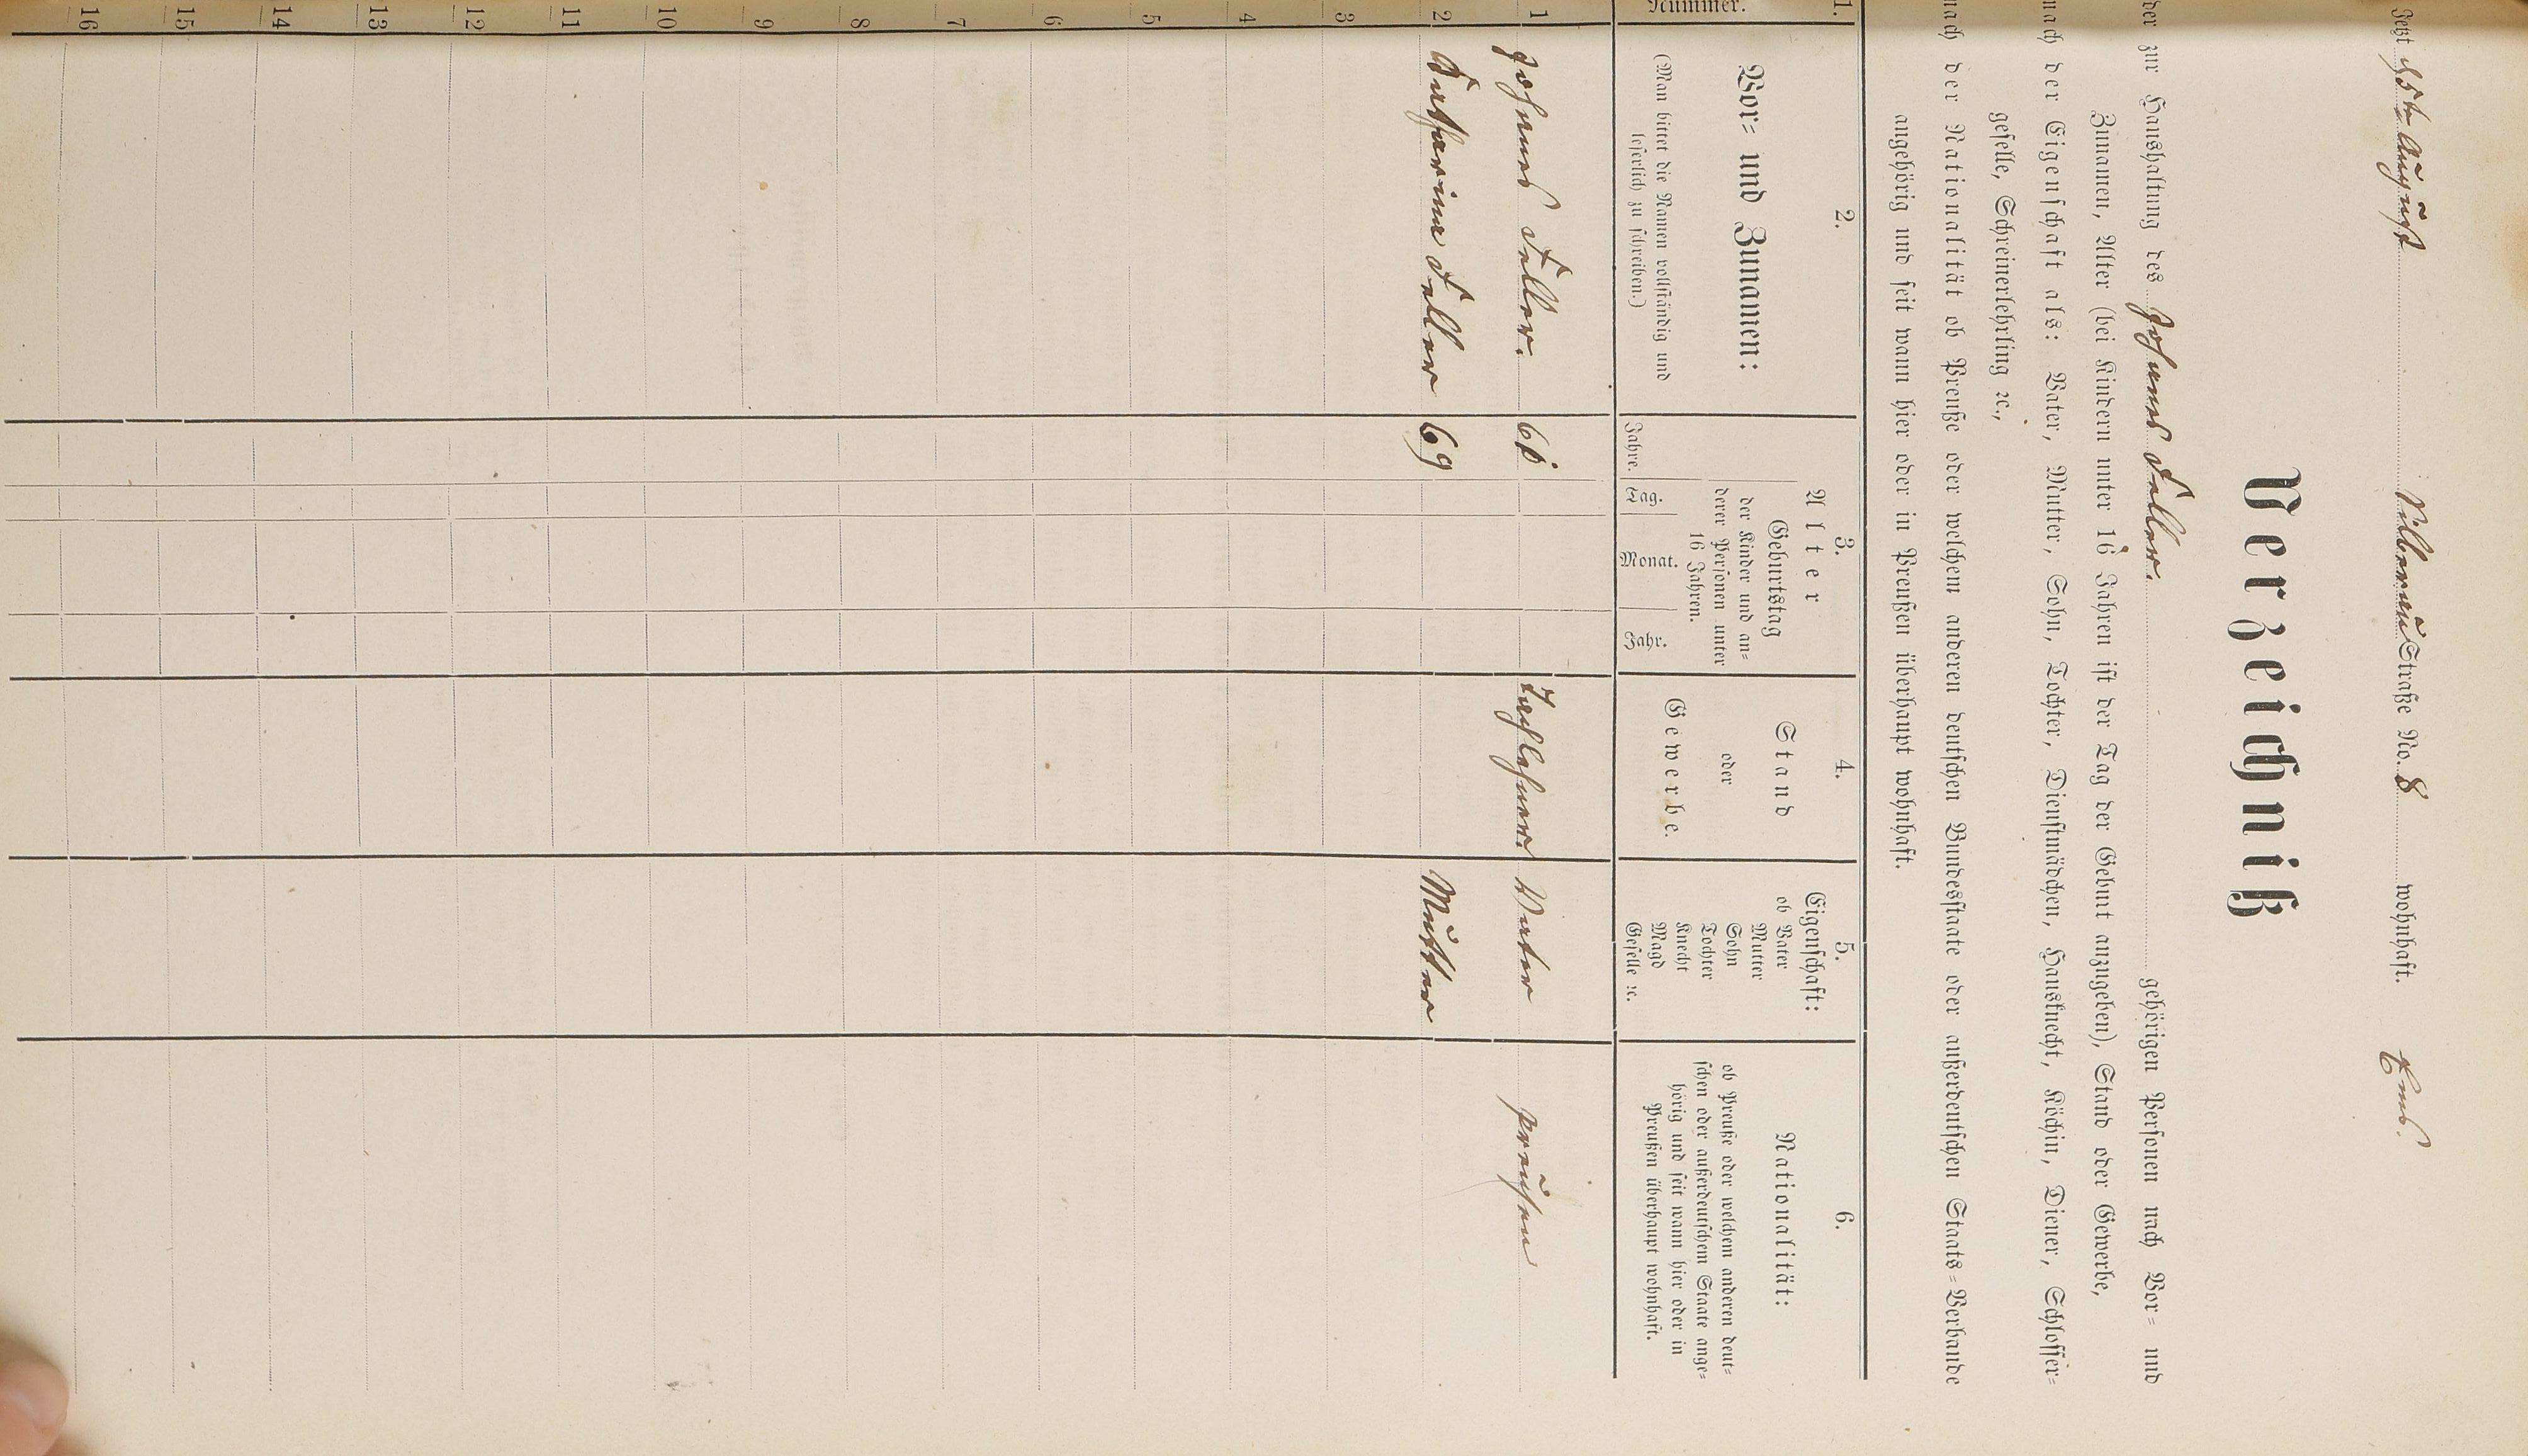 Jetzt August Silberau Straße No. 8 wohnhaft. Ems.
Verzeichniß
der zur Haushaltung des Johannes Feller. gehörigen Personen nach Vor= und
Zunamen, Alter (bei Kindern unter 16 Jahren ist der Tag der Geburt anzugeben), Stand oder Gewerbe,
nach der Eigenschaft als: Vater, Mutter, Sohn, Tochter, Dienstmädchen, Hausknecht, Köchin, Diener, Schlosser=
geselle, Schreinerlehrling ꝛc.,
nach der Nationalität ob Preuße oder welchem anderen deutschen Bundesstaate oder außerdeutschen Staats=Verbande
angehörig und seit wann hier oder in Preußen überhaupt wohnhaft.
1. 2. 3. 4. 5. 6.
Nummer.
Vor= und Zunamen:
(Man bittet die Namen vollständig und
leserlich zu schreiben.)
Alter
Geburtstag
der Kinder und an=
derer Personen unter
16 Jahren.
Jahre. Tag. Monat. Jahr.
Stand
oder
Gewerbe.
Eigenschaft:
ob Vater
Mutter
Sohn
Tochter
Knecht
Magd
Geselle ꝛc.
Nationalität:
ob Preuße oder welchem anderen deut=
schen oder außerdeutschem Staate ange=
hörig und seit wann hier oder in
Preußen überhaupt wohnhaft.
1 Feller. Taglehner. Vater preußen
2 Catharine Feller 69 Mutter
3
4
5
6
7
8
9
10
11
12
13
14
15
16